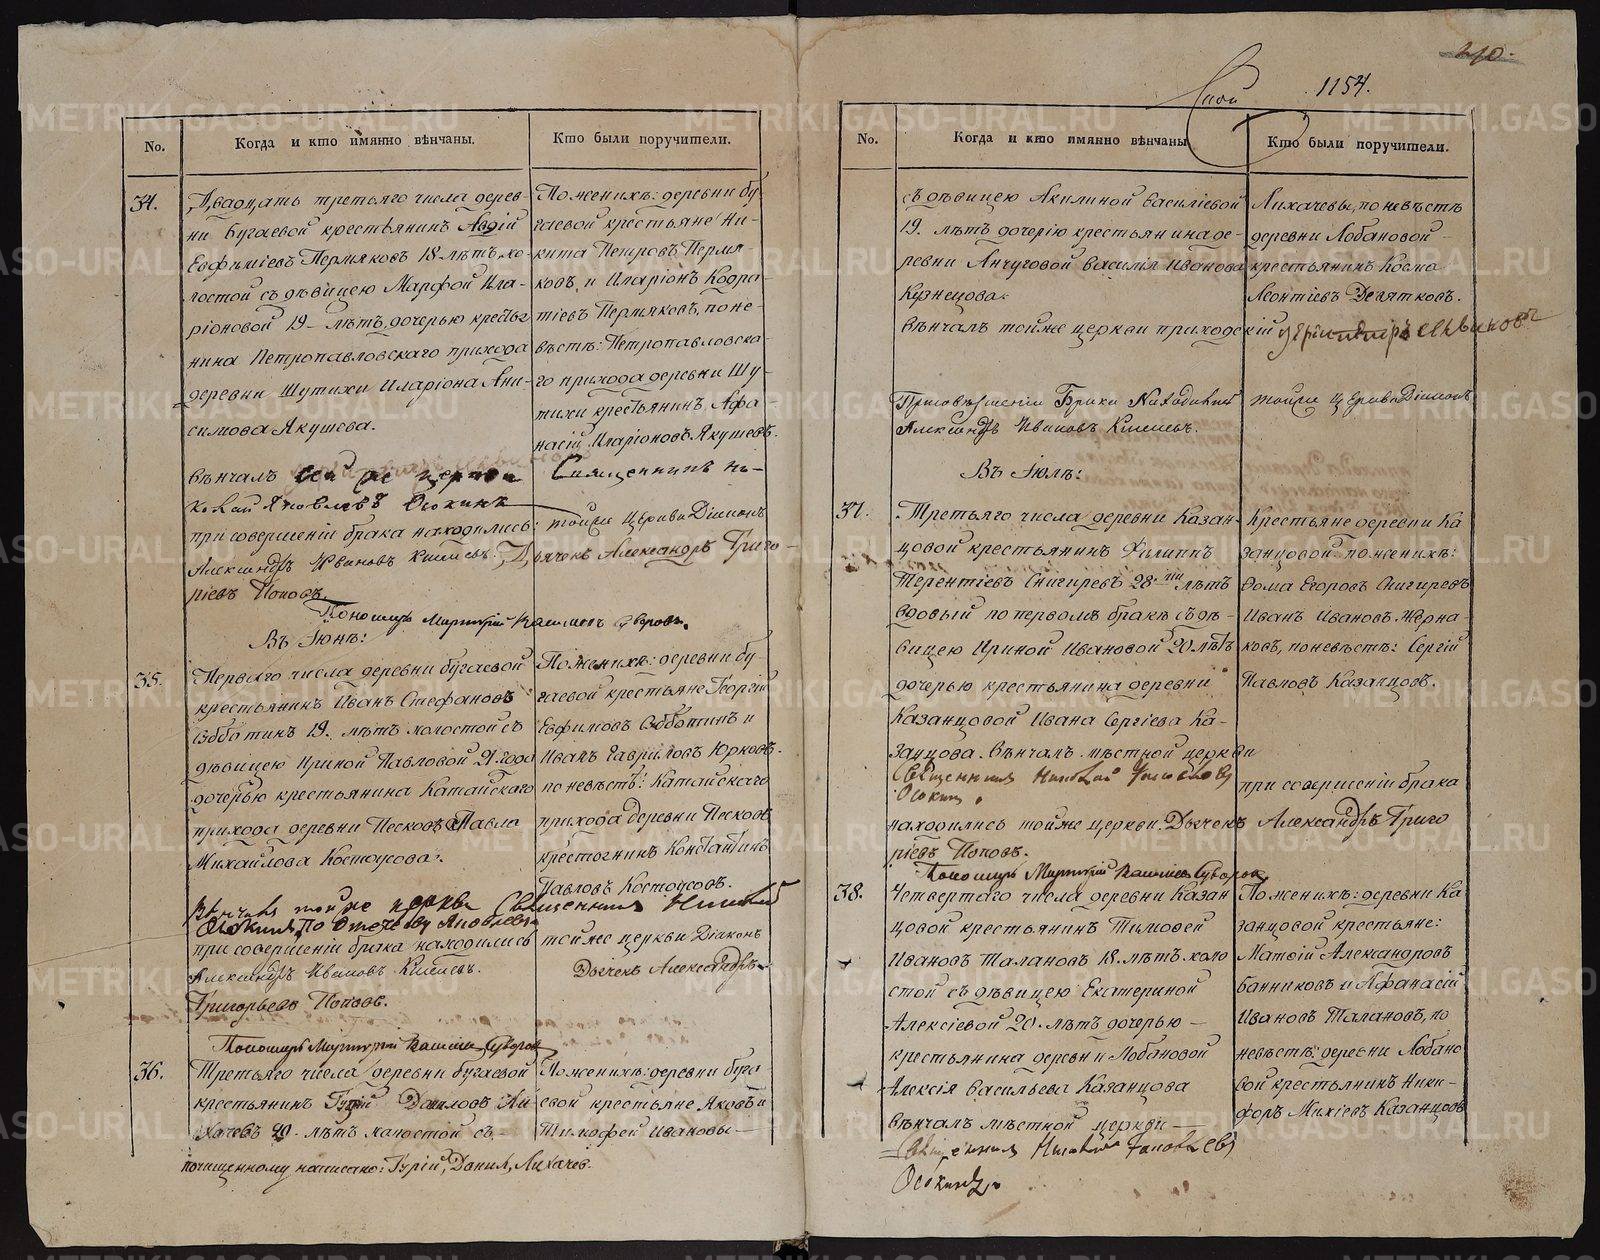 210.
1154.
No.
Когда и кто имянно вѣнчаны.
Кто были поручители.
34.
Двадцать третьяго числа дерев-
ни Бугаевой крестьянинъ Авдій
Евфиміевъ Пермяковъ 18 лѣтъ хо-
лостой съ дѣвицею Марфой Ила-
ріоновой 19 – лѣтъ, дочерью кресть
нина Петропавловскаго прихода
деревни Шутихи Иларіона Ани-
симова Якушева.
По женихѣ: деревни бу-
гаевой крестьяне Ни-
кита Петровъ Пермя-
ковъ, и Иларіонъ Кодра-
тіевъ Пермяковъ, поне-
вѣстѣ: Петропавловска-
го прихода деревни Шу-
тихи крестьянинъ Афа-
насій Иларіоновъ Якушевъ.
вѣнчалъ сей же церкви Священникъ Ни-
колай Яковлевъ Осокинъ
при совершеніи брака находились: тойже церкви Діаконъ
Александръ Ивановъ Дьячекъ Александръ Григо-
ріевъ Поповъ.
Пономарь
Въ Іюнѣ:
35.
Перваго числа деревни бугаевой
крестьянинъ Иванъ Стефановъ
Субботинъ 19. лѣтъ холостой съ
дѣвицею Ириной Павловой 21 года
дочерью крестьянина Катайскаго
прихода деревни Песковъ Павла
Михайлова Костоусова.
По женихѣ: деревни бу-
гаевой крестьяне Георгій
Евфимовъ Субботинъ и
Иванъ Гавриловъ Юрковъ.
по невѣстѣ: Катайскаго
прихода деревни Песковъ
крестьянинъ Константинъ
Павловъ Костоусовъ.
Вѣнчалъ тойже церкви Священникъ Николай
Осокинъ, по отечеству Яковлевъ
при совершеніи брака находились тойже церкви Діаконъ
Александръ Ивановъ Дьячекъ Александръ
Григорьевъ Поповъ.
Пономарь
36.
Третьяго числа деревни бугаевой
крестьянинъ Гурій Даниловъ Ли-
хачевъ 20. лѣтъ холостой съ –
По женихѣ: деревни буга-
евой крестьяне Яковъ и
Тимофей Ивановы –
почищенному написано: Гурій, Данил, Лихачев.
No.
Когда и кто имянно вѣнчаны
Кто были поручители.
съ дѣвицею Акилиной Василіевой
19. лѣтъ дочерію крестьянина де-
ревни Анчуговой Василія Иванова
Кузнецова.
Лихачевы, по невѣстѣ
деревни Лобановой –
крестьянинъ Косма
Леонтіевъ Девятковъ.
Вѣнчалъ тойже церкви приходскій
При совершеніи Брака Находились тойже церкви Діаконъ
Александръ Ивановъ
Въ Іюлѣ:
37.
Третьяго числа деревни Казан-
цовой крестьянинъ Филиппъ
Терентіевъ Снигиревъ 28.ми лѣтъ
вдовый по первомъ бракѣ съ дѣ-
вицею Ириной Ивановой 20 лѣтъ
дочерью крестьянина деревни
Казанцовой Ивана Сергіева Ка-
занцова. Вѣнчалъ мѣстной церкви
Священникъ Николай Яковлевъ
Осокинъ.
Крестьяне деревни Ка
занцовой: по женихѣ:
Фома Егоровъ Снигиревъ
Иванъ Ивановъ Жерна-
ковъ, по невѣстѣ: Сергій
Павловъ Казанцовъ.
при совершеніи брака
находились тойже церкви: Дьячекъ Александръ Григо
ріевъ Поповъ.
Пономарь
38.
Четвертаго числа деревни Казан
цовой крестьянинъ Тимофей
Ивановъ Талановъ 18. лѣтъ холо
стой съ дѣвицею Екатериной
Алексіевой 20. лѣтъ дочерью –
крестьянина деревни Лобановой
Алексія Васильева Казанцова
вѣнчалъ мѣстной церкви –
Священникъ Николай Яковлевъ
Осокинъ.
По женихѣ: деревни Ка
занцовой крестьяне:
Матфій Александровъ
Банниковъ и Афанасій
Ивановъ Талановъ, по
невѣстѣ: деревни Лобано
вой крестьянинъ Ники-
форъ Михіевъ Казанцовъ